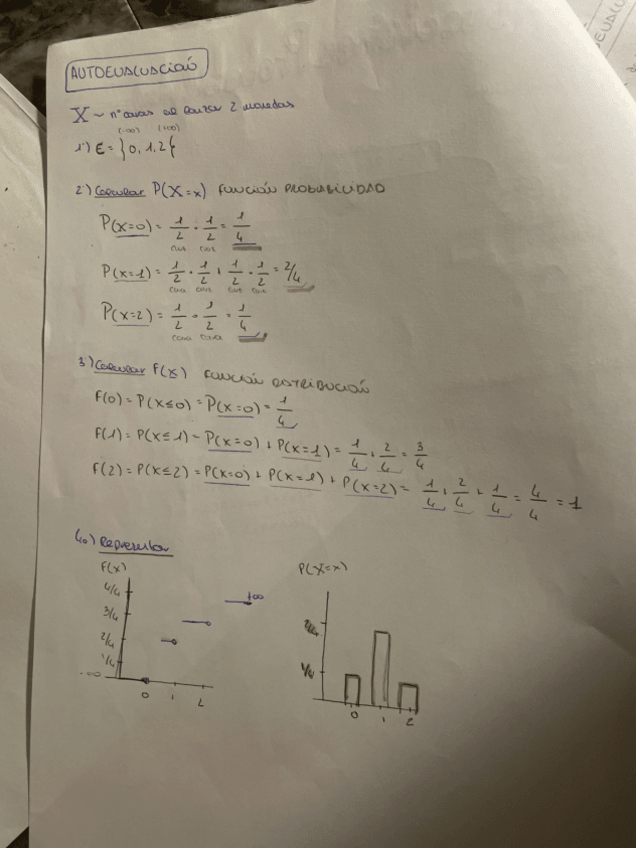 AUTOEVALUACIÓN
X ~ nº caras al lanzar 2 monedas
(-∞) (+∞)
1º) E = {0, 1, 2{
2º) Calcular P(X=x) FUNCIÓN PROBABILIDAD
P(X=0) = 1/2 · 1/2 = 1/4
cruz cruz
P(X=1) = 1/2 · 1/2 + 1/2 · 1/2 = 2/4
P(X=2) = 1/2 · 1/2 = 1/4
cara cara
3º) Calcular F(x) FUNCIÓN DISTRIBUCIÓN
F(0) = P(X≤0) = P(X=0) = 1/4
F(1) = P(X≤1) = P(X=0) + P(X=1) = 1/4 + 2/4 = 3/4
F(2) = P(X≤2) = P(X=0) + P(X=1) + P(X=2) = 1/4 + 2/4 + 1/4 = 4/4 = 1
4º) Representar
F(x)
4/4
3/4
2/4
1/4
-∞
+∞
0 1 2
P(X=x)
2/4
1/4
0 1 2